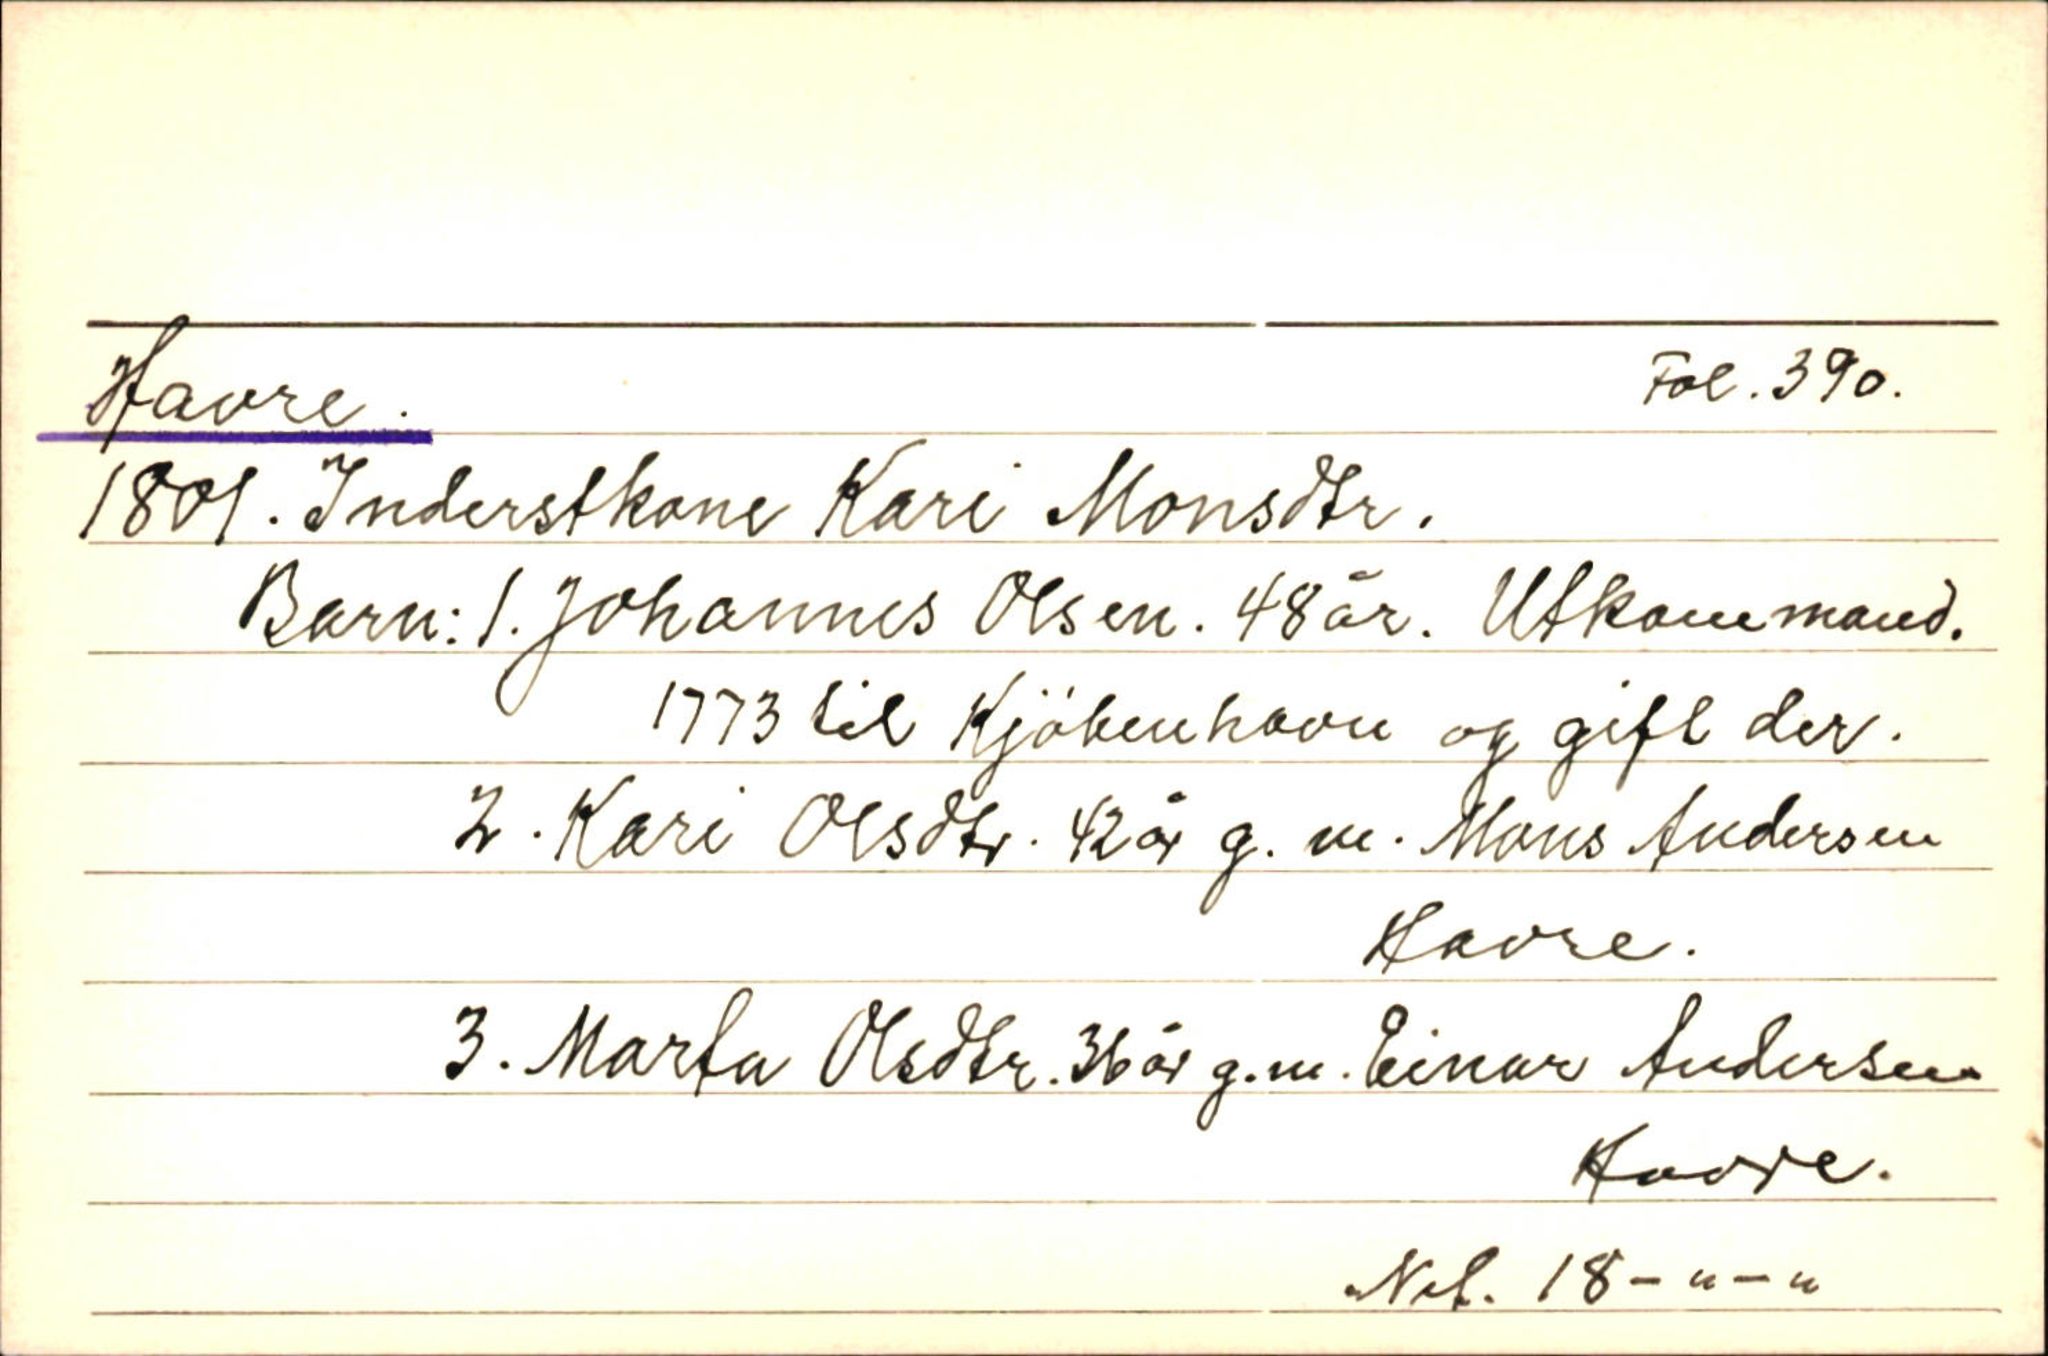 Havre.
Fol. 390.
1801. Inderstkone Kari Monsdtr.
Barn: 1. Johannes Olsen. 48 år. Utkommand.
1773 til Kjöbenhavn og gift der.
2. Kari Olsdtr. 42 år g. m. Mons Andersen
Havre.
3. Marta Olsdtr. 36 år g. m. Einar Andersen
Havre.
Net. 18 - " - "